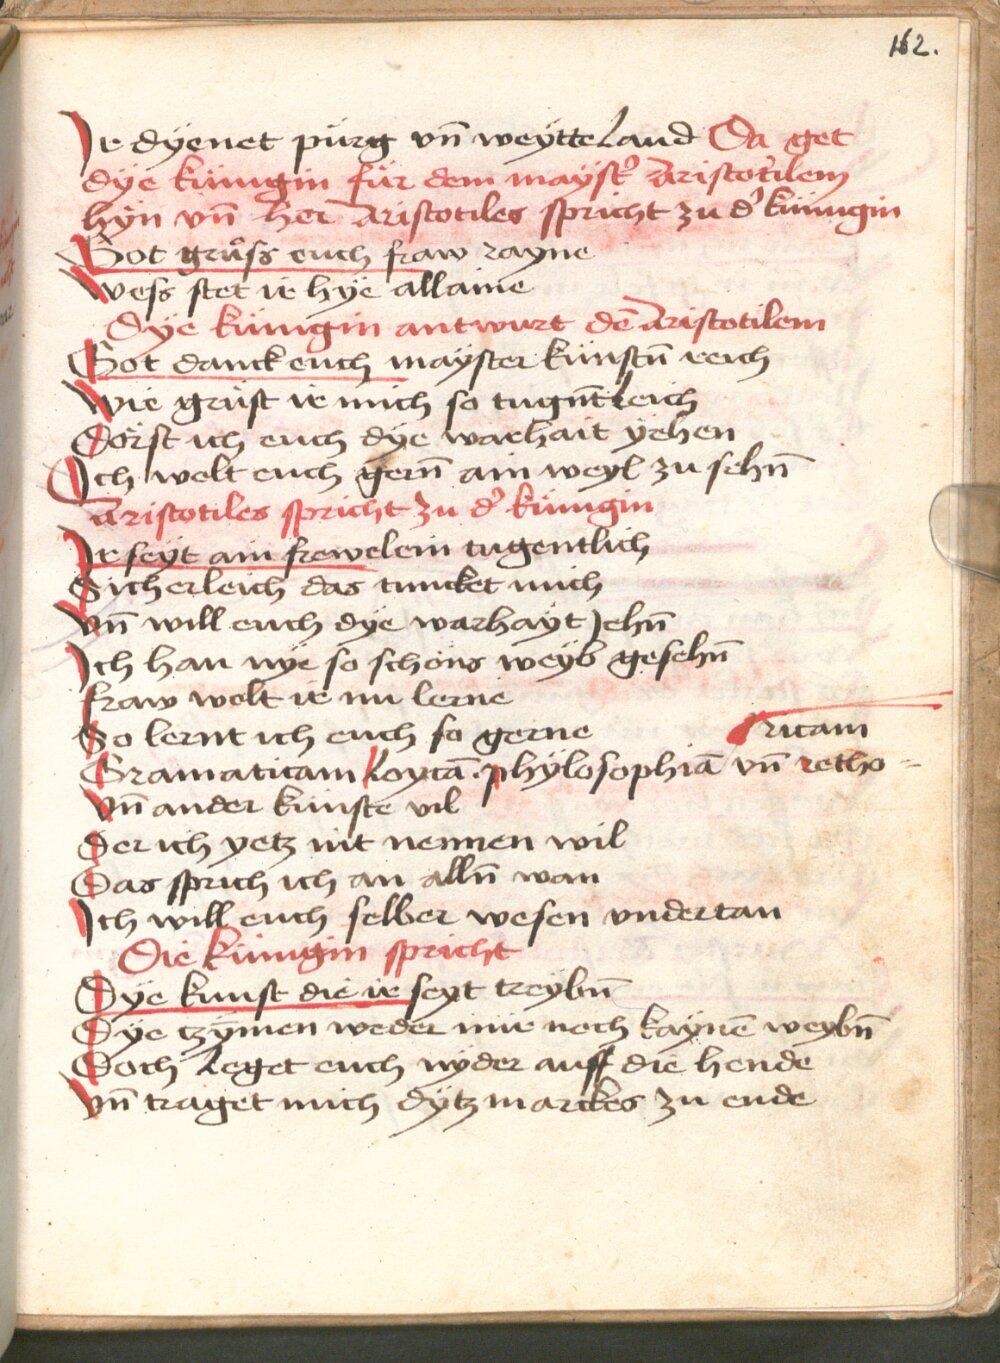 162.
Ir dyenet pürg vn̄ weytte Land Da get
dÿe künigin für dem mayst᾽ Aristotilem
hyn vn̄ her Aristotiles spricht zu d᾽ künigin
Got grůss euch fraw rayne
Wess stet ir hÿe allaine
Dÿe künigin antwurt dē Aristotilem
Got danck euch maÿster künstn̄ reich
Wie grüst ir mich so tugn̄tleich
Dörst ich euch dÿe warhait ÿehen
Ich welt euch gern̄ ain weyl zu sehn̄
Aristotiles spricht zu d᾽ künigin
Ir seyt ain frewelein tugentlich
Sicherleich das tuncket mich
Vn̄ will euch dÿe warhaÿt Jehn̄
Ich han nÿe so schöns weyb gesehn̄
fraw welt ir nu lerne
So lernt ich euch so gerne ricam
Gramaticam Loycā phÿlosophiā vn̄ retho-
Vn̄ ander künste vil
Der ich yetz nit nennen wil
Das sprich ich an alln̄ wan
Ich will euch selber wesen vndertan
Die künigin spricht
Dÿe kunst die ir seyt treybn̄
Dÿe tzÿmen weder mir noch kaÿnē weybn̄
Doch Leget euch nÿder auff die hende
Vn̄ traget mich dÿtz marckes zu ende